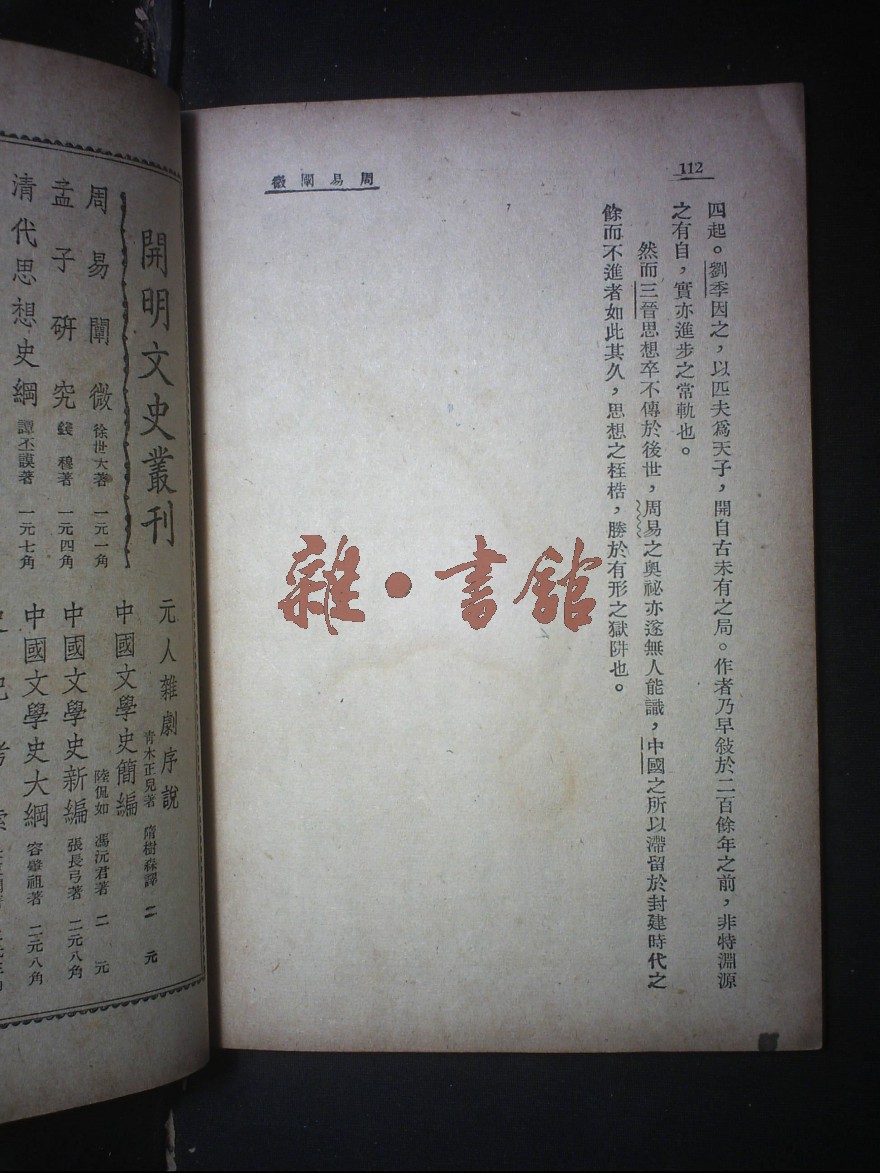 112
周易闡微
四起。劉季因之，以匹夫爲天子，開自古未有之局。作者乃早敍於二百餘年之前，非特淵源
之有自，實亦進步之常軌也。
然而三晉思想卒不傳於後世，周易之奧祕亦遂無人能識，中國之所以滯留於封建時代之
餘而不進者如此其久，思想之桎梏，勝於有形之獄阱也。
雜·書館
開明文史叢刊
周易闡微 徐世大著 一元一角
孟子研究 錢穆著 一元四角
清代思想史綱 譚丕謨著 一元七角
元人雜劇序說 青木正兒著 隋樹森譯 二元
中國文學史簡編 陸侃如 馮沅君著 二元
中國文學史新編 張長弓著 二元八角
中國文學史大綱 容肇祖著 二元八角
史記考索